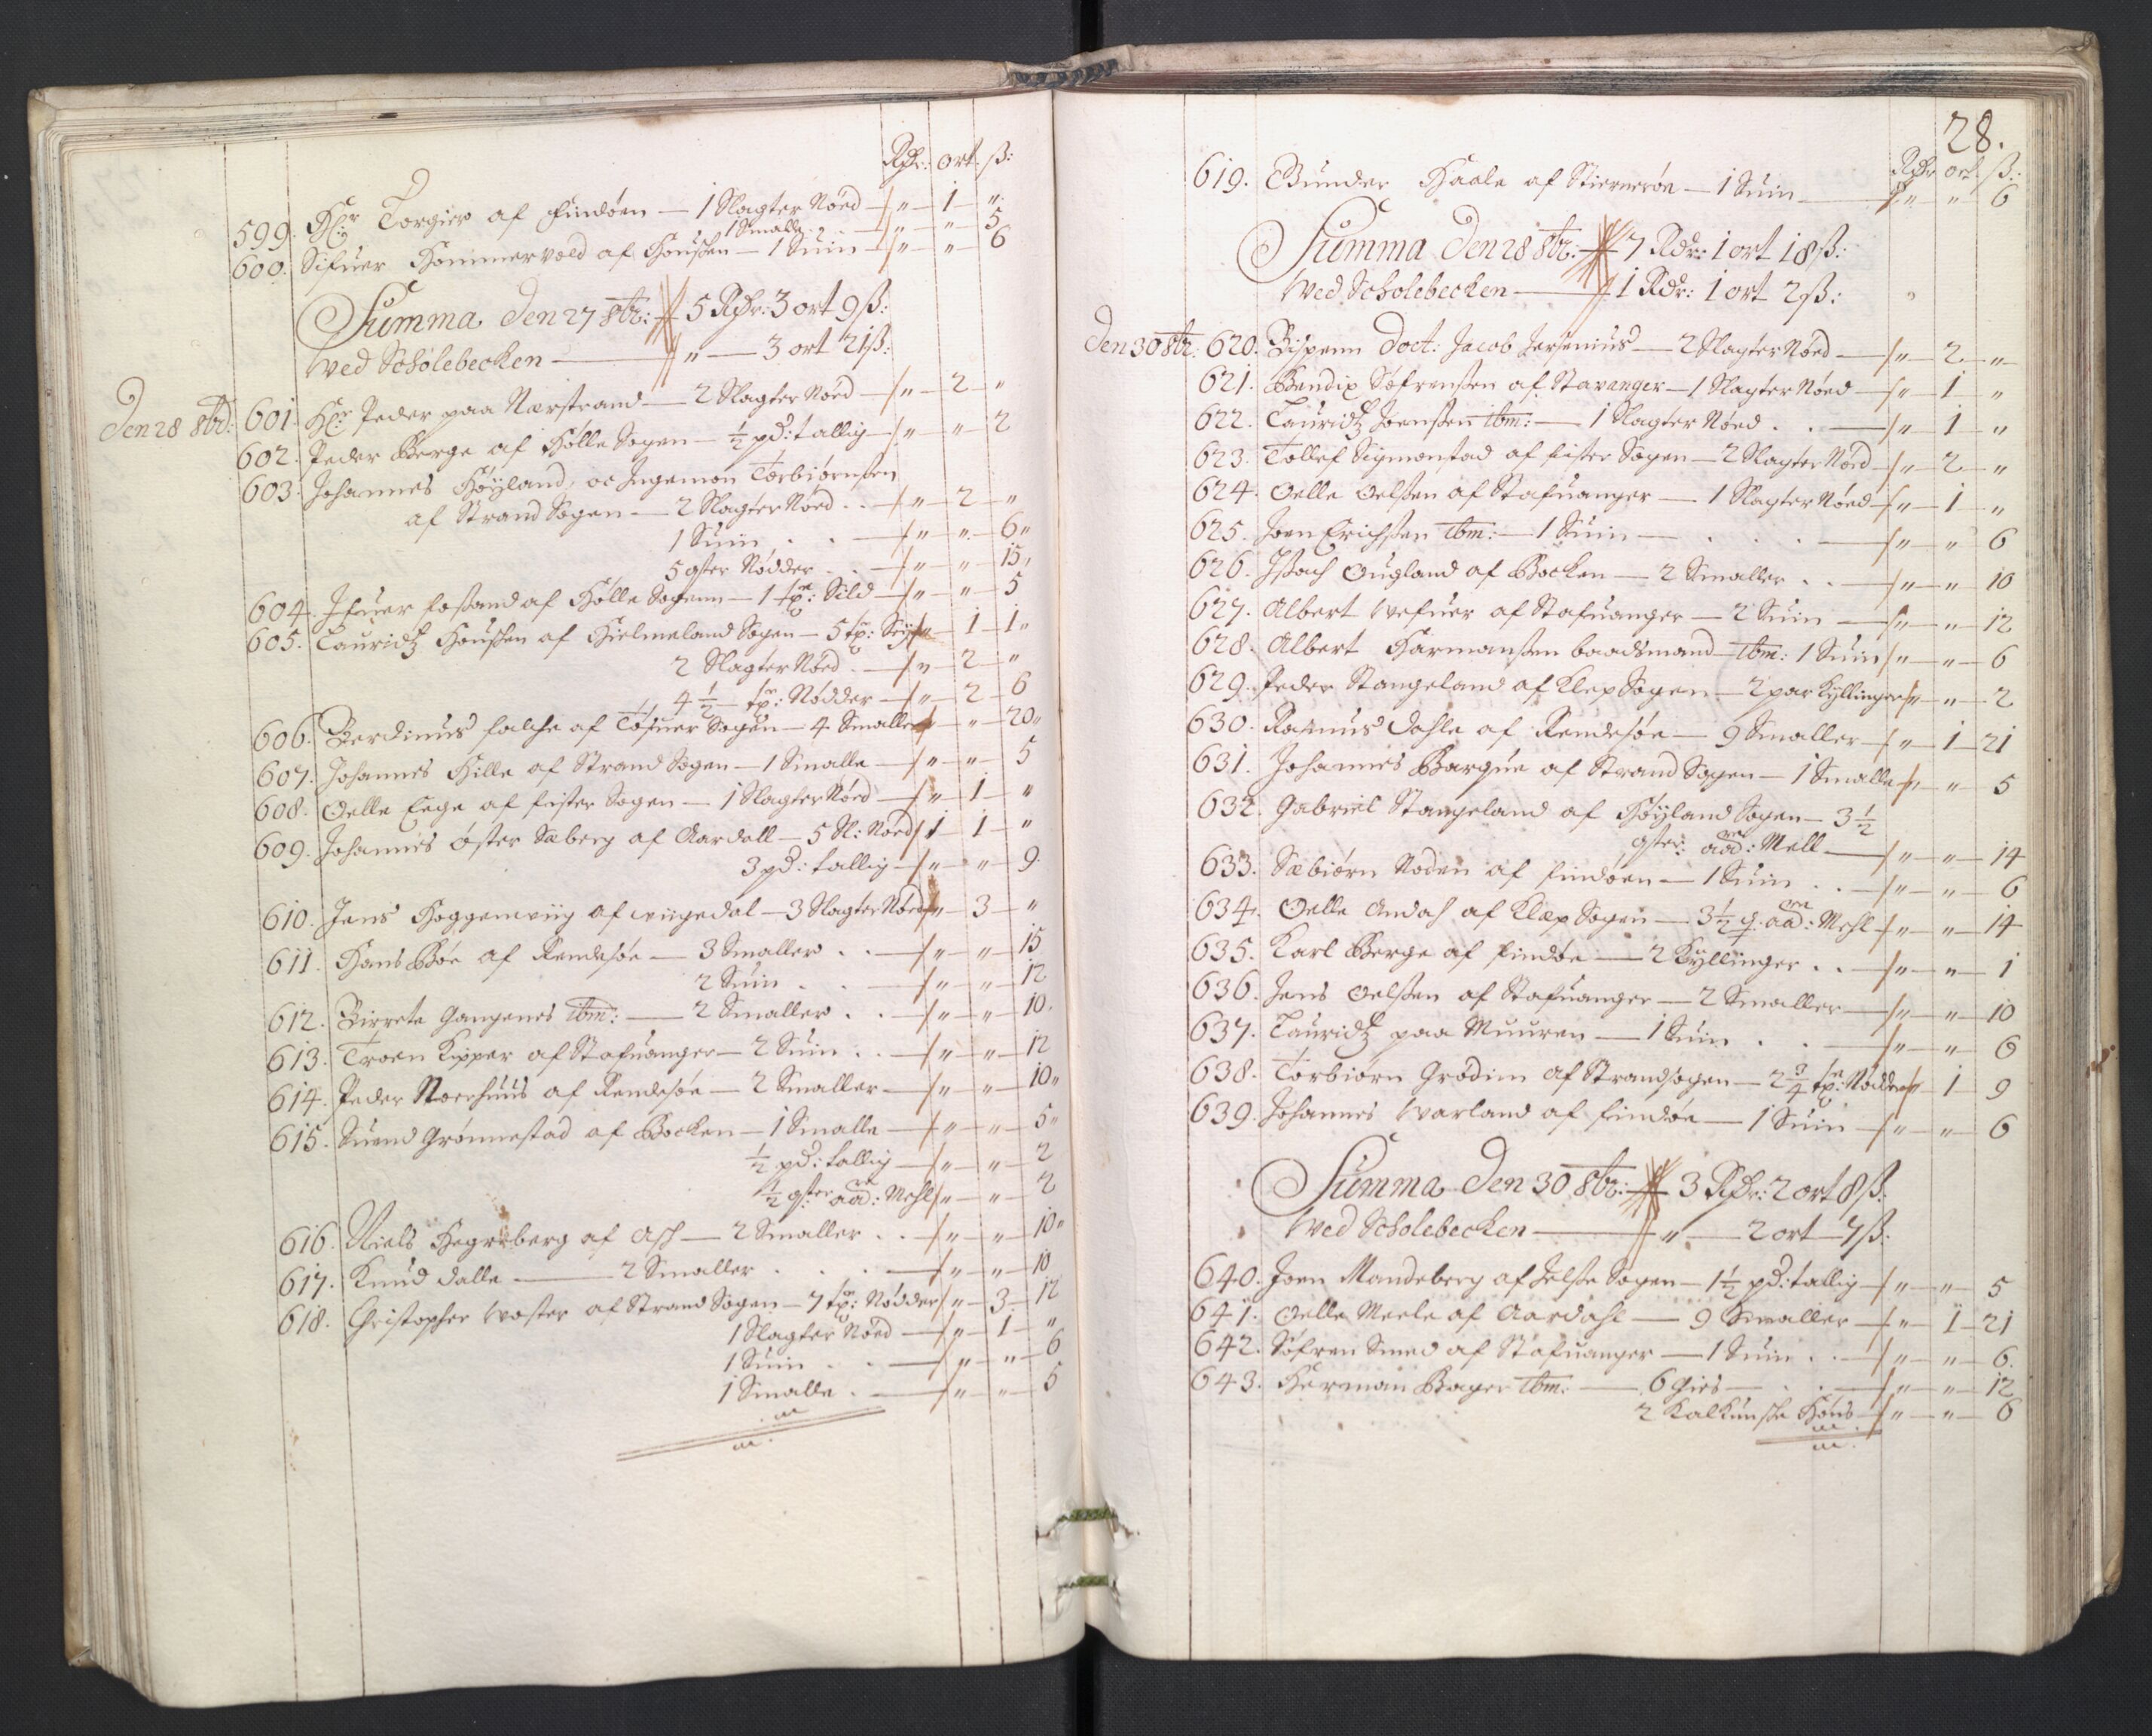 Rdr: ort. ß:
599. Hr: Torgier af Findøen — 1 Slagter Nöed — " — 1 — "
1 Smalle . . — " — " — 5
600. Sifuer Hommervold af Houßen — 1 Suin — " — " — 6
Summa Den 27 8br: — 5 Rdr: 3 ort 9 ß:
Wed Scholebecken — " — 3 ort 21 ß:
Den 28 8br: 601. Hr: Peder paa Nærstrand — 2 Slagter Nöed — " — 2 — "
602. Peder Berge af Hölle Sogen — ½ pd: tallig — " — " — 2
603. Johannes Höyland, oc Ingemon Torbiörnßen
af Strand Sogen — 2 Slagter Nöed . . — " — 2 — "
1 Suin . . — " — " — 6 "
5 gster Nödder . . — " — " — 15 "
604. Ifuer Foßand af Hölle Sogenn — 1 tpn: Sild — " — " — 5
605. Lauridtz Houßen af Hielmeland Sogen — 5 tpn: — " — 1 — 1 "
2 Slagter Nöed . — " — 2 — "
4 ½ tpn: Nödder — " — 2 — 6
606. Berdinus Falche af Tösuer Sogen — 4 Smaller — " — " — 20 "
607. Johannes Hille af Strand Sogen — 1 Smalle — " — " — 5
608. Oelle Eege af Fister Sogen — 1 Slagter Nöed — " — 1 — "
609. Johannes Öster Sæberg af Aardall — 5 Sl: Nöed — 1 — 1 — "
3 pd: tallig — " — " — 9.
610. Jens Hoggemviig af Wiigedal — 3 Slagter Nöed — " — 3 — "
611. Hans Böe af Rendesöe — 3 Smaller . . — " — " — 15
2 Suin . . — " — " — 12
612. Birrete Gangenes Ibm: — 2 Smaller . . — " — " — 10.
613. Troen Kipper af Stafuanger — 2 Suin . . — " — " — 12
614. Peder Noerhuus af Rendesöe — 2 Smaller — " — " — 10 "
615. Suend Grönnestad af Bocken — 1 Smalle — " — " — 5 "
½ pd: tallig — " — " — 2
½ gster aad: Mehl — " — " — 2
616. Niels Hegreberg af Ask — 2 Smaller . . — " — " — 10 "
617. Knud Dalle — 2 Smaller . . . — " — " — 10
618. Christopher Woster af Strand Sogen — 7 tpn: Nödder — " — 3 — 12
1 Slagter Nöed — " — 1 — "
1 Suin . . — " — " — 6
1 Smalle . — " — " — 5
28.
Rdr ort. ß:
619. Gunder Haale af Stiernerön — 1 Suin — " — " — 6
Summa Den 28 8br: — 7 Rdr: 1 ort 18 ß:
Wed Scholebecken — 1 Rdr: 1 ort 2 ß:
Den 30 8br: 620. Bispenn Doct: Jacob Jersenius — 2 Slagter Nöed — " — 2 — "
621. Bendix Söfrenßen af Stavanger — 1 Slagter Nöed — " — 1 — "
622. Lauridtz Joenßen Ibm: — 1 Slagter Nöed . . — " — 1 — "
623. Tollef Sigmonstad af Fister Sogen — 2 Slagter Nöed — " — 2 — "
624. Oelle Oelßen af Stafuanger — 1 Slagter Nöed — " — 1 — "
625. Joen Erichßen Ibm: — 1 Suin — . . . — " — " — 6
626. Ißach Ougland af Bocken — 2 Smaller . . — " — " — 10
627. Albert Wefuer af Stafuanger — 2 Suin — " — " — 12
628. Albert Harmanßen baadsmand Ibm: 1 Suin — " — " — 6
629. Peder Stangeland af Klep Sogen — 2 par Kyllinger — " — " — 2
630. Rasmus Dahle af Rendesöe — 9 Smaller — " — 1 — 21
631. Johannes Bargue af Strand Sogen — 1 Smalle — " — " — 5
632. Gabriel Stangeland af Höyland Sogen — 3 ½
gster: aad: Mell — " — " — 14
633. Sæbiörn Noden af Findöen — 1 Suin . . — " — " — 6
634. Oelle Andah af Klæp Sogen — 3 ½ g. aad: Mehl — " — " — 14
635. Karl Berge af Findöe — 2 Kyllinger . . — " — " — 1
636. Jens Oelßen af Stafuanger — 2 Smaller — " — " — 10
637. Lauridtz paa Muuren — 1 Suin . . — " — " — 6
638. Torbiörn Grödim af Strandsogen — 2 ¾ tpn: Nödder — " — 1 — 9
639. Johannes Warland af Findöe — 1 Suin — " — " — 6
Summa Den 30 8br: — 3 Rdr: 2 ort 8 ß:
Wed Scholebecken — " — 2 ort 7 ß:
640. Joen Mandeberg af Jelße Sogen — 1 ½ pd: tallig — " — " — 5
641. Oelle Meele af Aardahl — 9 Smaller — " — 1 — 21
642. Söfren Smed af Stafuanger — 1 Suin . . — " — " — 6.
643. Herman Bager Ibm: — 6 Gies — . . — " — " — 12
2 Kalkunske Höns — " — " — 6